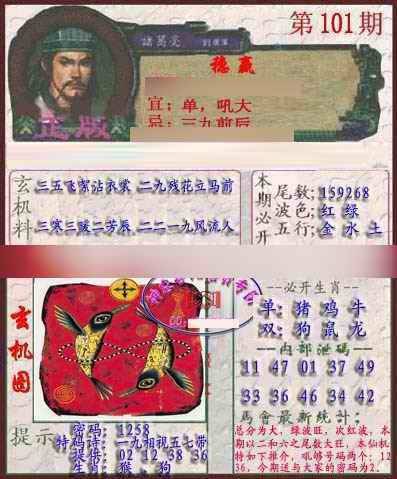 第101期
諸葛亮
劉伯溫
稳赢
宜：单，吼大
忌：三九前后
正版
玄机料
三五飞絮沾衣裳 二九残花立马前
三寒三暖二芳辰 二二一九风流人
本期必开
尾数：159268
波色：红 绿
五行：金 水 土
必开生肖
单：猪 鸡 牛
双：狗 鼠 龙
内部泄码
11 47 01 37 49
33 36 46 34 42
馬會最新统计：
总分为大，绿波旺，次红波，本
期以二和六之尾数大旺，本仙机
特如下推介，吼够号码两个：12
36，今期送与大家的密码为2．
玄机图
提示
密码：1258
特码诗：一九相视五七带
提倍：02 12 38 36
生肖：猴 狗